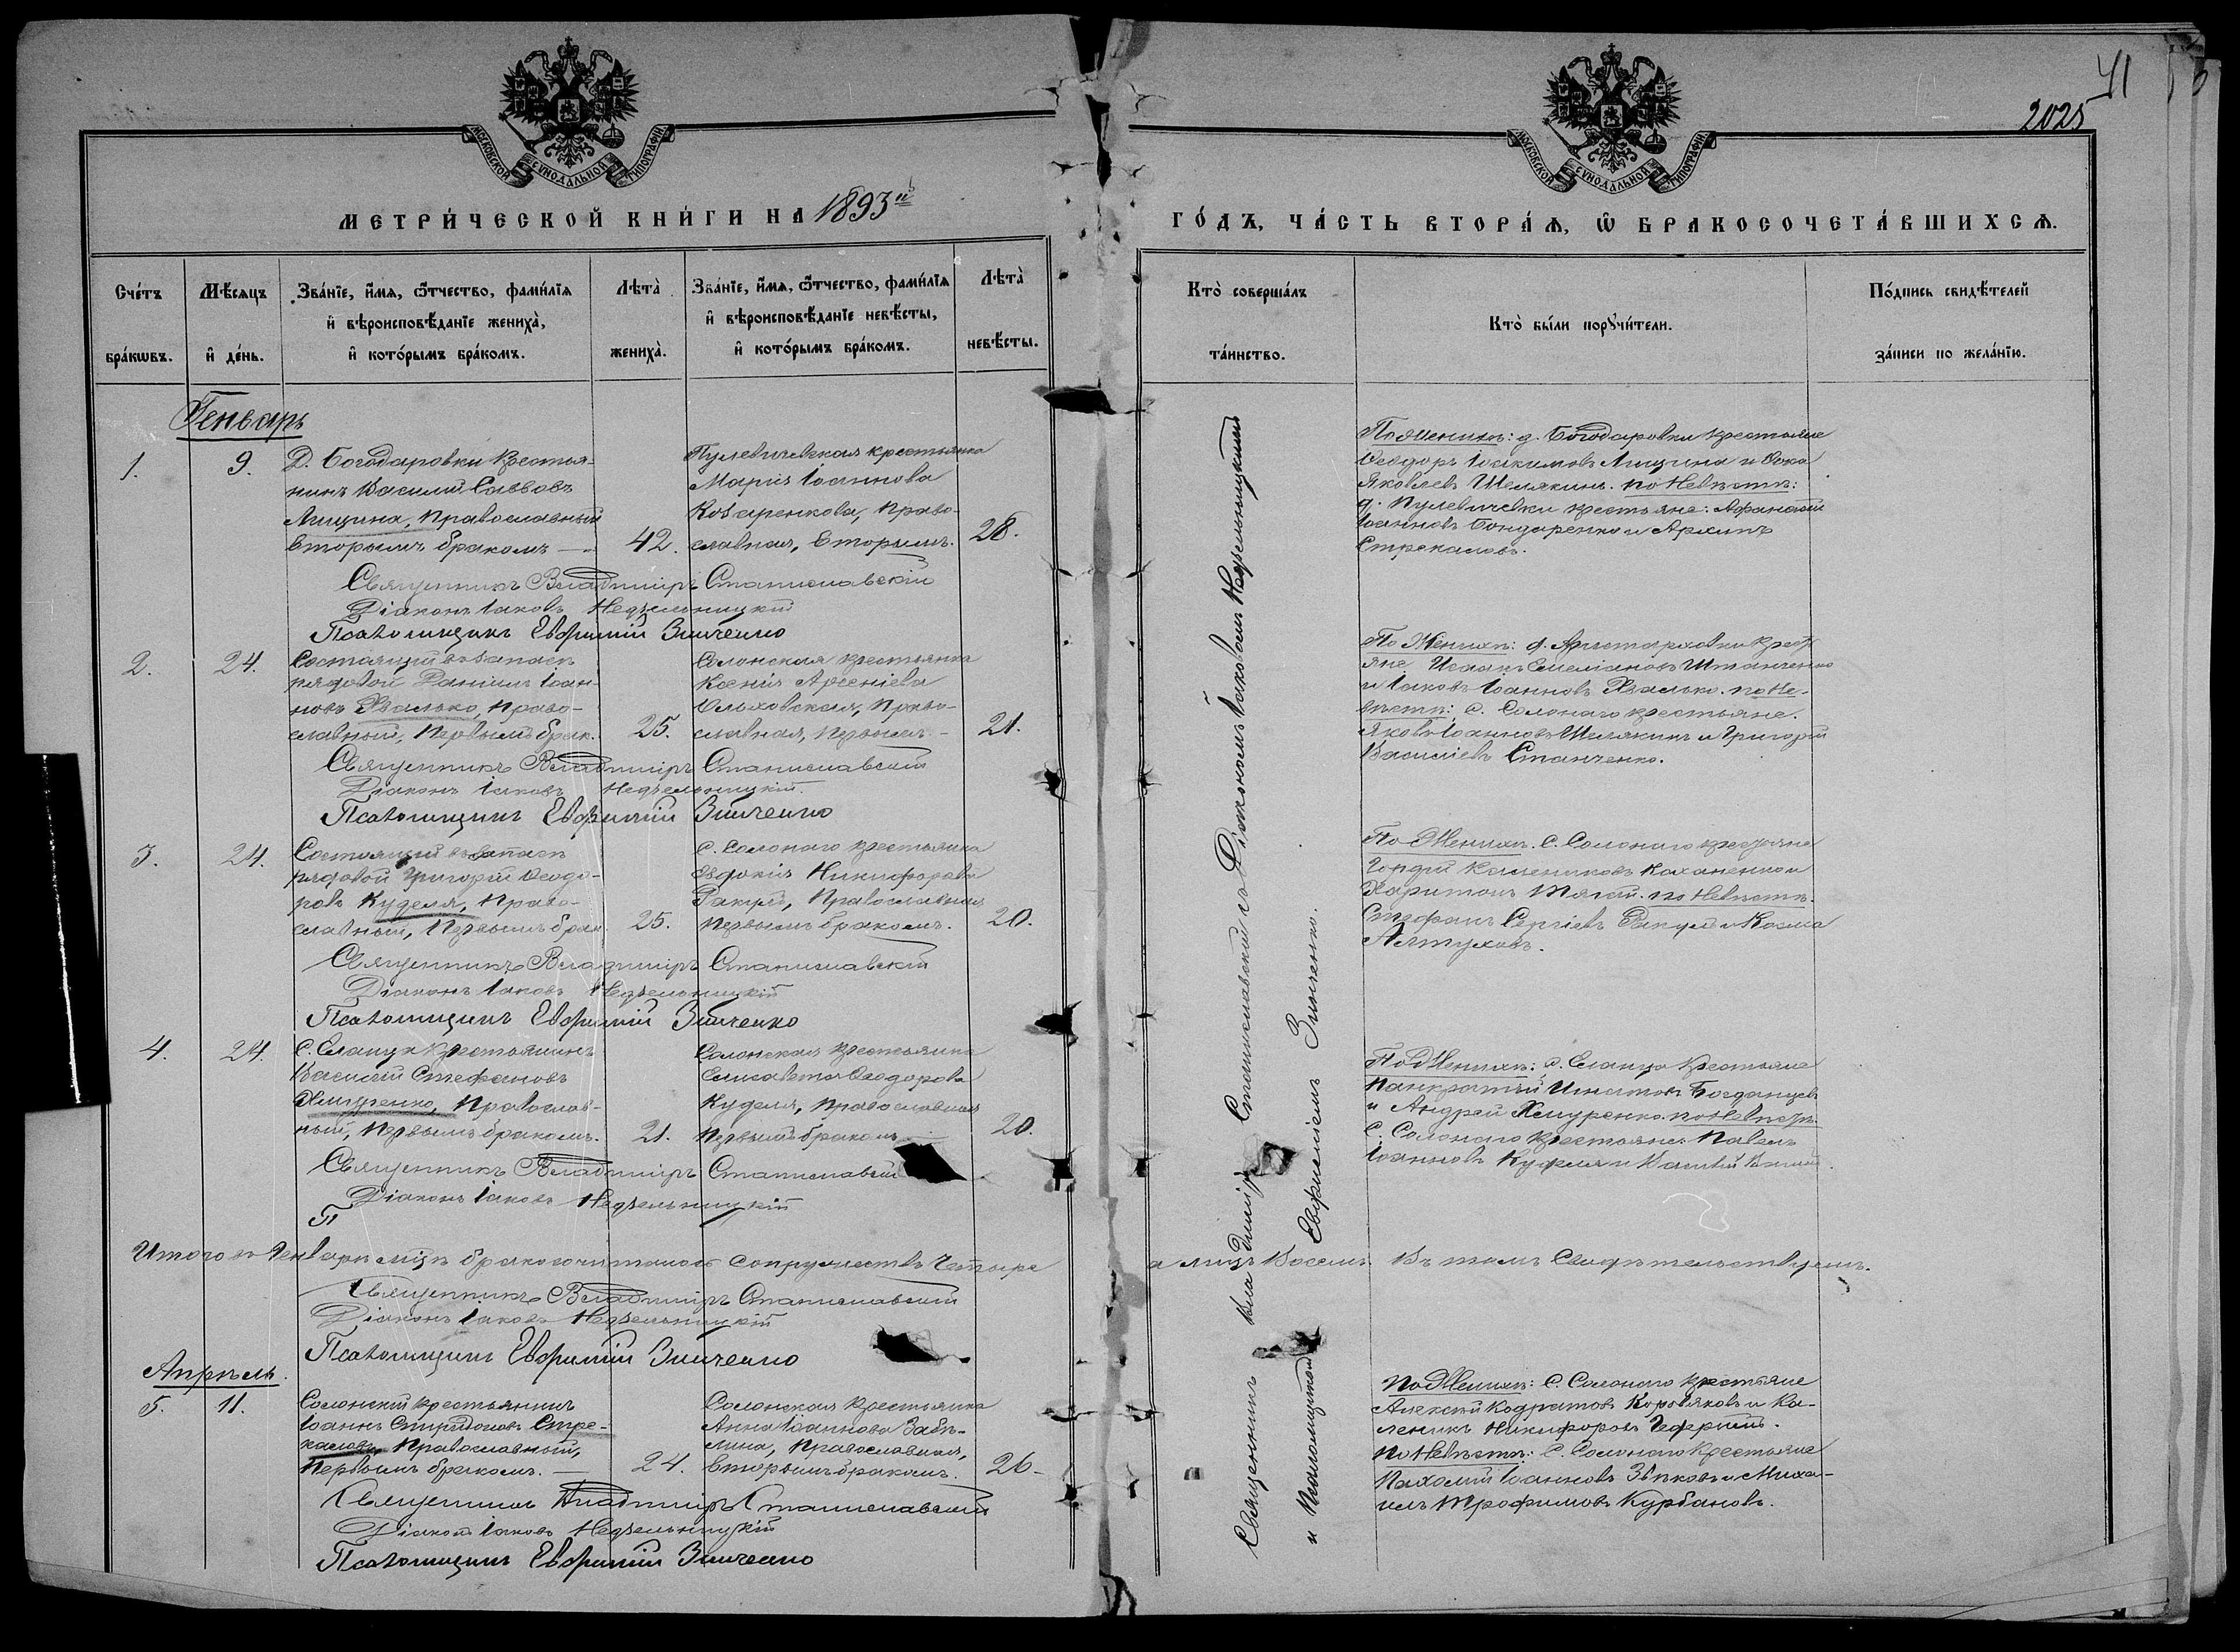 41
2025
МОСКОВСКОЙ СУНОДАЛЬНОЙ ТИПОГРАФІИ
МОСКОВСКОЙ СУНОДАЛЬНОЙ ТИПОГРАФІИ
МЕТРИ́ЧЕСКОЙ КНИ́ГИ НА 1893й
ГО́ДЪ, ЧА́СТЬ ВТОРА́Ѧ, Ѽ БРАКОСОЧЕТА́ВШИХСѦ.
Сче́тъ бра́кѡвъ.
Мѣ́сяцъ и҆ де́нь.
Зва́нїе, и҆́мѧ, ѻ҆́тчество, фами́лїѧ
и҆ вѣроисповѣ́данїе жениха̀,
и҆ кото́рымъ бра́комъ.
Лѣта̀ жениха̀.
Зва́нїе, и҆́мѧ, ѻ҆́тчество, фами́лїѧ
и҆ вѣроисповѣ́данїе невѣ́сты,
и҆ кото́рымъ бра́комъ.
Лѣта̀ невѣ́сты.
Кто̀ соверша́лъ та́инство.
Кто̀ бы́ли порꙋчи́тели.
По́дпись свидѣ́телей за́писи по жела́нїю.
Генварь
1. 9.
Д. Богодаровки крестья-
нинъ Василій Саввовъ
Лицина, православный
вторымъ бракомъ — 42.
Пулевичевская крестьянка
Марія Іоаннова
Козаренкова, право-
славная, вторымъ. 28.
По женихѣ: д. Богодаровки крестьяне
Ѳеодоръ Іоакимовъ Лицина и Ѳока
Яковлевъ Шелякинъ. по невѣстѣ:
д. Пулевичевки крестьяне: Аѳанасій
Іоанновъ Бондаренко и Архипъ
Стрекаловъ.
Священникъ Владиміръ Станиславскій
Діаконъ Іаковъ Недзельницкій
Псаломщикъ Евфимій Зинченко
2. 24.
Состоящій въ запасѣ
рядовой Даніилъ Іоан-
новъ Хвалько, право-
славный, первымъ брак. 25.
Солонская крестьянка
Ксенія Арсеніева
Ольховская, право-
славная, первымъ — 21.
По женихѣ: д. Аристарховки крест
яне Исаакъ Емеліановъ Штанченко
и Іаковъ Іоанновъ Хвалько. по не-
вѣстѣ: с. Солонаго крестьяне.
Яковъ Іоанновъ Шелякинъ и Григорій
Василіевъ Станченко.
Священникъ Владиміръ Станиславскій
Діаконъ Іаковъ Недзельницкій.
Псаломщикъ Евфимій Зинченко
3. 24.
Состоящій въ запасѣ
рядовой Григорій Ѳеодо-
ровъ Куделя, право-
славный, первымъ брак 25.
с. Солонаго крестьянка
Евдокія Никифорова
православная
первымъ бракомъ. 20.
По женихѣ. С. Солонаго крестьяне
Гордій Калениковъ Коханенко и
Харитонъ Тягій. по невѣстѣ.
Стефанъ Сергіевъ и Козма
Алтуховъ.
Священникъ Владиміръ Станиславскій
Діаконъ Іаковъ Недзельницкій
Псаломщикъ Евфимій Зинченко
4. 24.
С. Еланца крестьянинъ
Василій Стефановъ
Хмуренко, православ-
ный, первымъ бракомъ. 21.
Солонская крестьянка
Елисавета Ѳеодорова
Куделя, православная
первымъ бракомъ — 20.
По женихѣ: с. Еланца крестьяне
Панкратій Игнатовъ Богданцевъ
и Андрей Хмуренко. по невѣстѣ.
С. Солонаго крестьяне. Павелъ
Іоанновъ Куделя и
Священникъ Владиміръ Станиславскій
Діаконъ Іаковъ Недзельницкій
П
Итого въ Генварѣ м-цѣ бракосочиталось супружествъ четыре
а лицъ восемь. Въ томъ свидѣтельствуемъ.
Священникъ Владиміръ Станиславскій
Діаконъ Іаковъ Недзельницкій
Псаломщикъ Евфимій Зинченко
Апрѣль.
5. 11.
Солонскій крестьянинъ
Іоаннъ Спиридоновъ Стре-
каловъ, православный,
первымъ бракомъ. — 24.
Солонская крестьянка
Анна Іоаннова Забѣ-
лина, православная,
вторымъ бракомъ. 26-
По женихѣ: С. Солонаго крестьяне
Алексій Кодратовъ Коровяковъ и Ка-
леникъ Никифоровъ
По невѣстѣ: С. Солонаго крестьяне
Пахомій Іоанновъ Зѣнковъ и Миха-
илъ Трофимовъ Курбановъ.
Священникъ Владиміръ Станиславскій
Діаконъ Іаковъ Недзельницкій
Псаломщикъ Евфимій Зинченко
Священникъ Владиміръ Станиславскій съ Діакономъ Іаковомъ Недзельницкимъ
и Псаломщикомъ Евфиміемъ Зинченко.